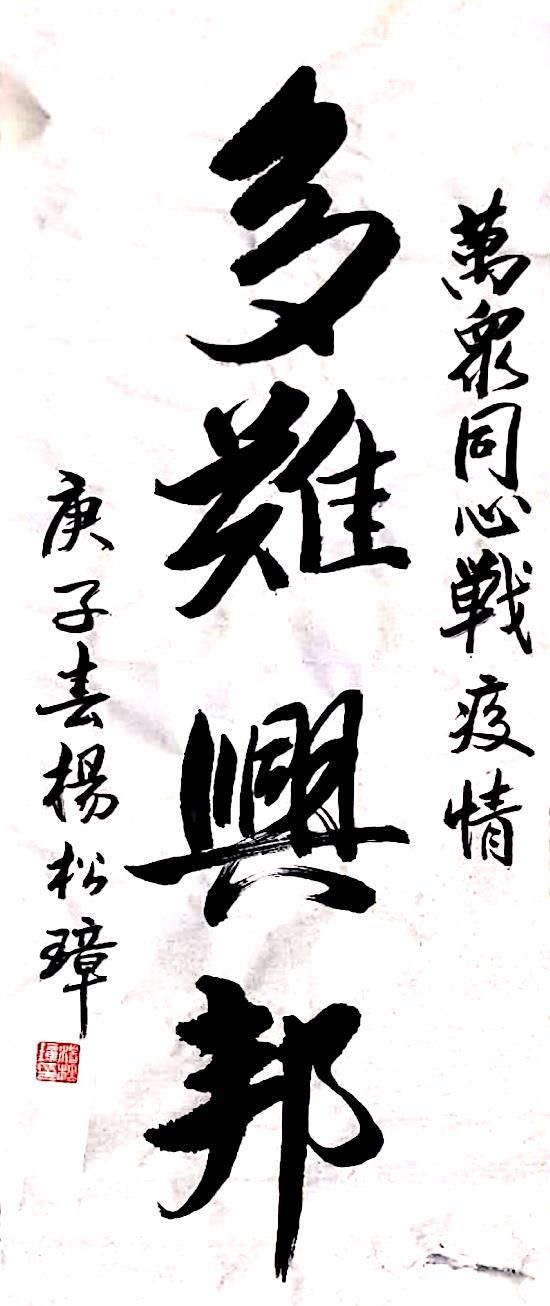 萬衆同心戰疫情
多難興邦
庚子春楊松璋